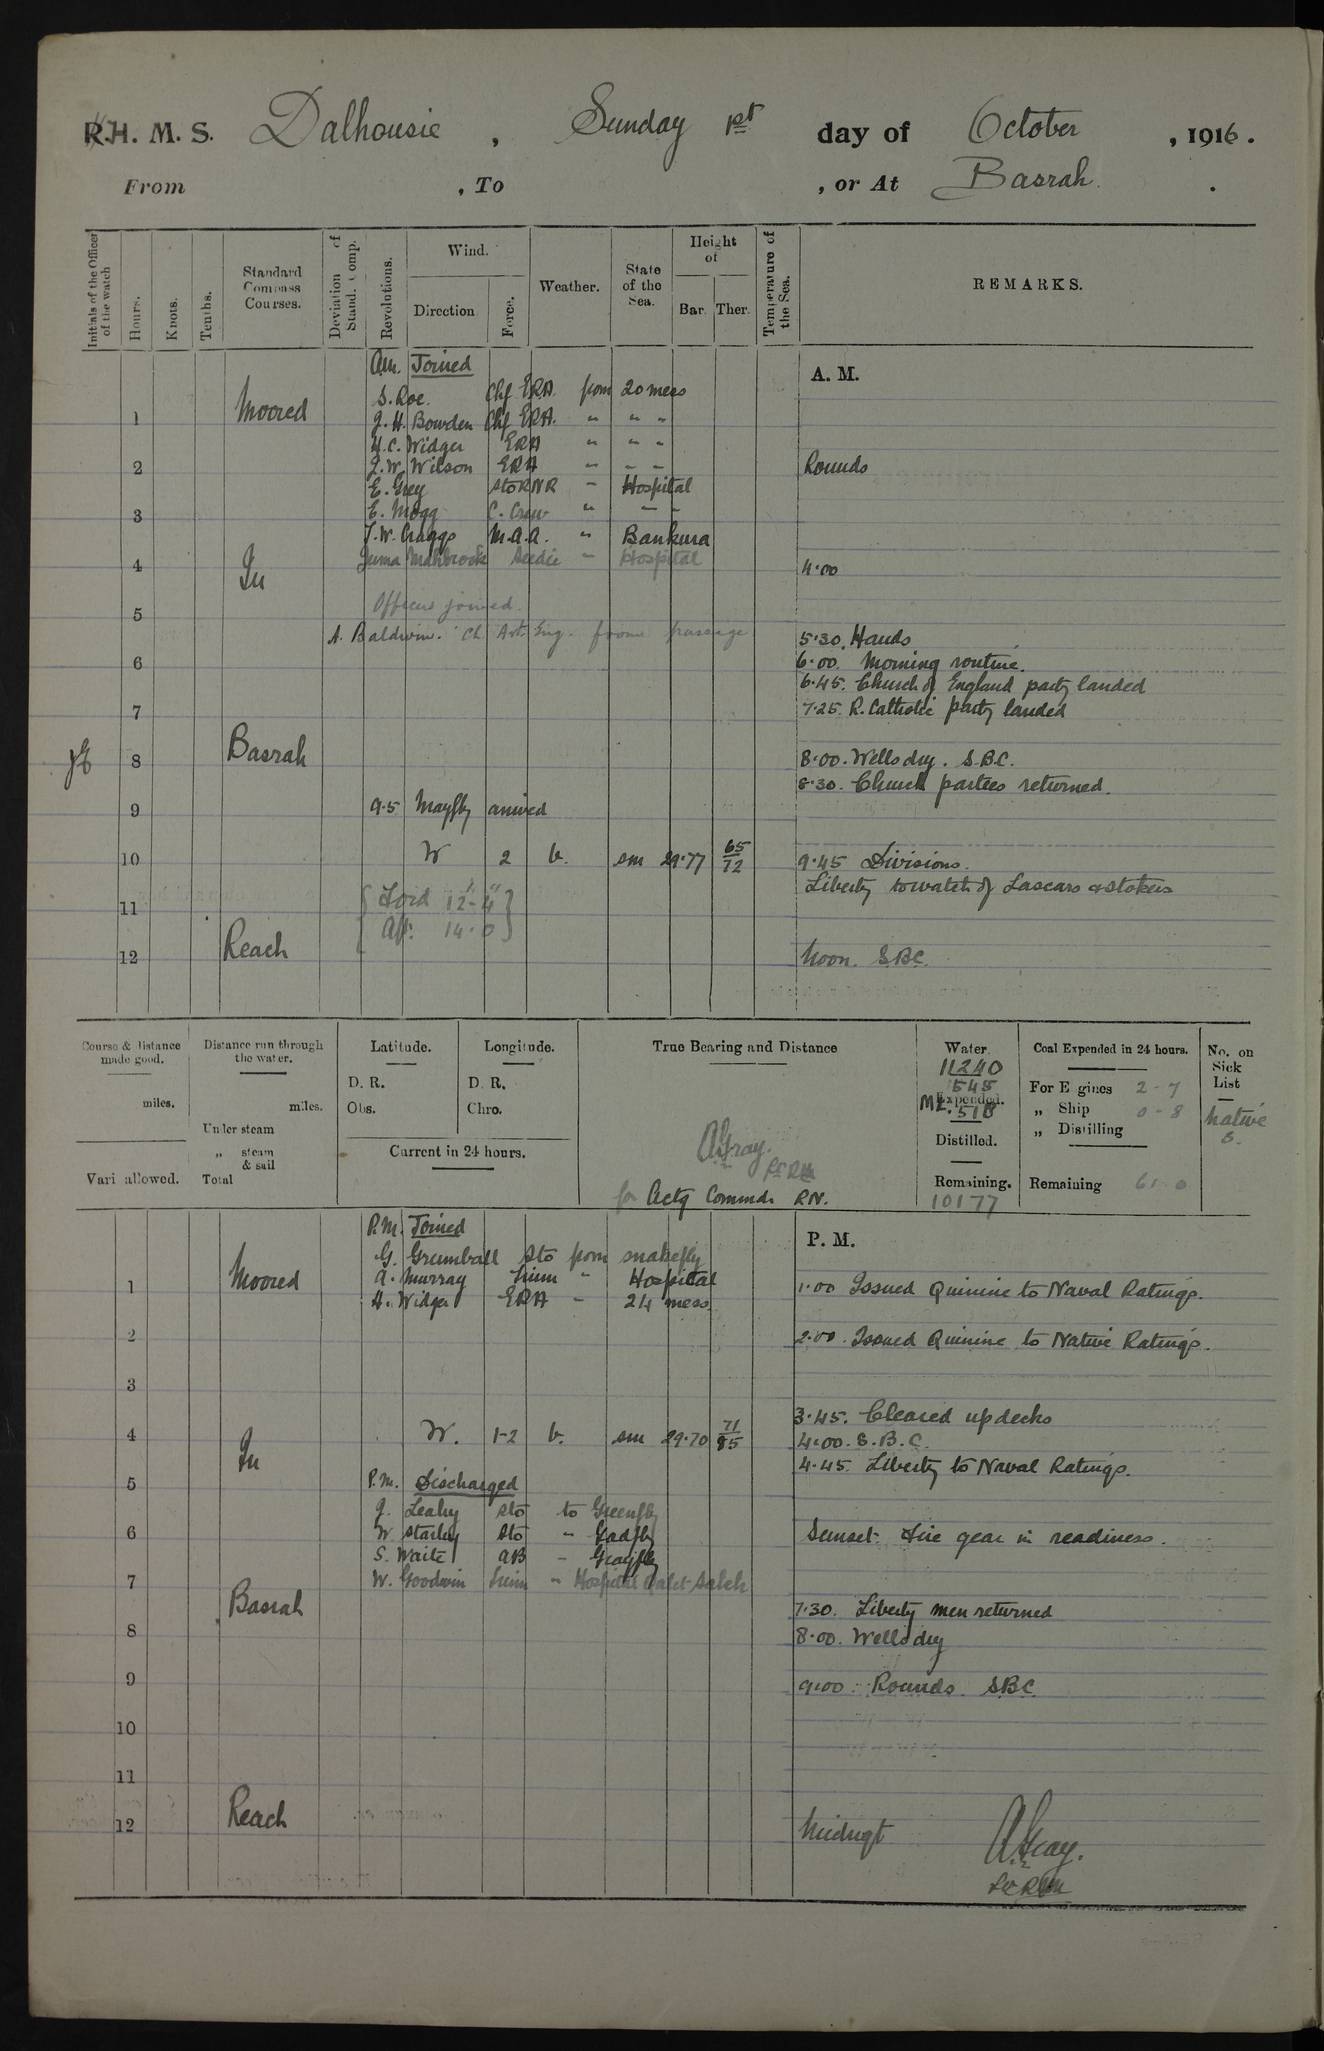 R.H. M. S. Dalhousie, Sunday 1st day of October, 1916.
From , To , or At Basrah.
Initials of the Officer of the watch
Hours.
Knots.
Tenths.
Standard Compass Courses.
Deviation of Stand. Comp.
Revolutions.
Wind.
Direction
Force.
Weather.
State of the Sea.
Height of
Bar. Ther.
Temperature of the Sea.
REMARKS.
Am. Joined
A. M.
S. Roe. Chf ERA from 20 mess
1 Moored J. H. Bowden Chf ERA. " " "
H. C. Widger ERA " " "
2 J. W. Wilson ERA " " " Rounds
E. Grey Sto RNR " Hospital
3 E. Mogg C. Crew " " "
J. W. Craggs M.A.A. " Bankura
4 In Juma Seedie " Hospital 4.00
5 Officers joined.
A. Baldwin. Ch Art. Eng. from passage 5.30. Hands
6 6.00. Morning routine.
6.45. Church of England party landed
7 7.25. R. Catholic party landed
JE 8 Basrah 8.00. Wells dry. S.B.C.
8.30. Church parties returned.
9 9.5 Mayfly arrived
10 W 2 b. sm 29.77 65/72 9.45 Divisions.
Liberty to watch of Lascars & stokers
11 {Ford 12'-4"}
{Aft. 14.0}
12 Reach Noon. S.B.C.
Course & distance made good.
miles.
Vari allowed.
Distance run through the water.
miles.
Under steam
„ steam & sail
Total
Latitude.
D. R.
Obs.
Longitude.
D. R.
Chro.
Current in 24 hours.
True Bearing and Distance
A Gray.
for Actg Commdr RN.
Water
11240
545
Expended.
518
Distilled.
Remaining.
10177
Coal Expended in 24 hours.
For Engines 2-7
„ Ship 0-8
„ Distilling
Remaining 61-0
No. on Sick List
Native
P.M. Joined
P. M.
G. Grumball Sto from Snakefly
1 Moored A. Murray " Hospital 1.00 Issued Quinine to Naval Ratings.
H. Widger ERA " 24 mess
2 2.00. Issued Quinine to Native Ratings.
3
3.45. Cleared up decks
4 In W. 1-2 b. sm 29.70 71/85 4.00. S.B.C.
4.45. Liberty to Naval Ratings.
5 P.M. Discharged
J. Leahy Sto to Greenfly
6 W Starley Sto " Gadfly Sunset. Fire gear in readiness.
S. Waite AB " Grayfly
7 W. Goodwin " Hospital
Basrah 7.30. Liberty men returned
8 8.00. Wells dry
9 9.00. Rounds. SBC.
10
11
12 Reach Midngt
A Gray.